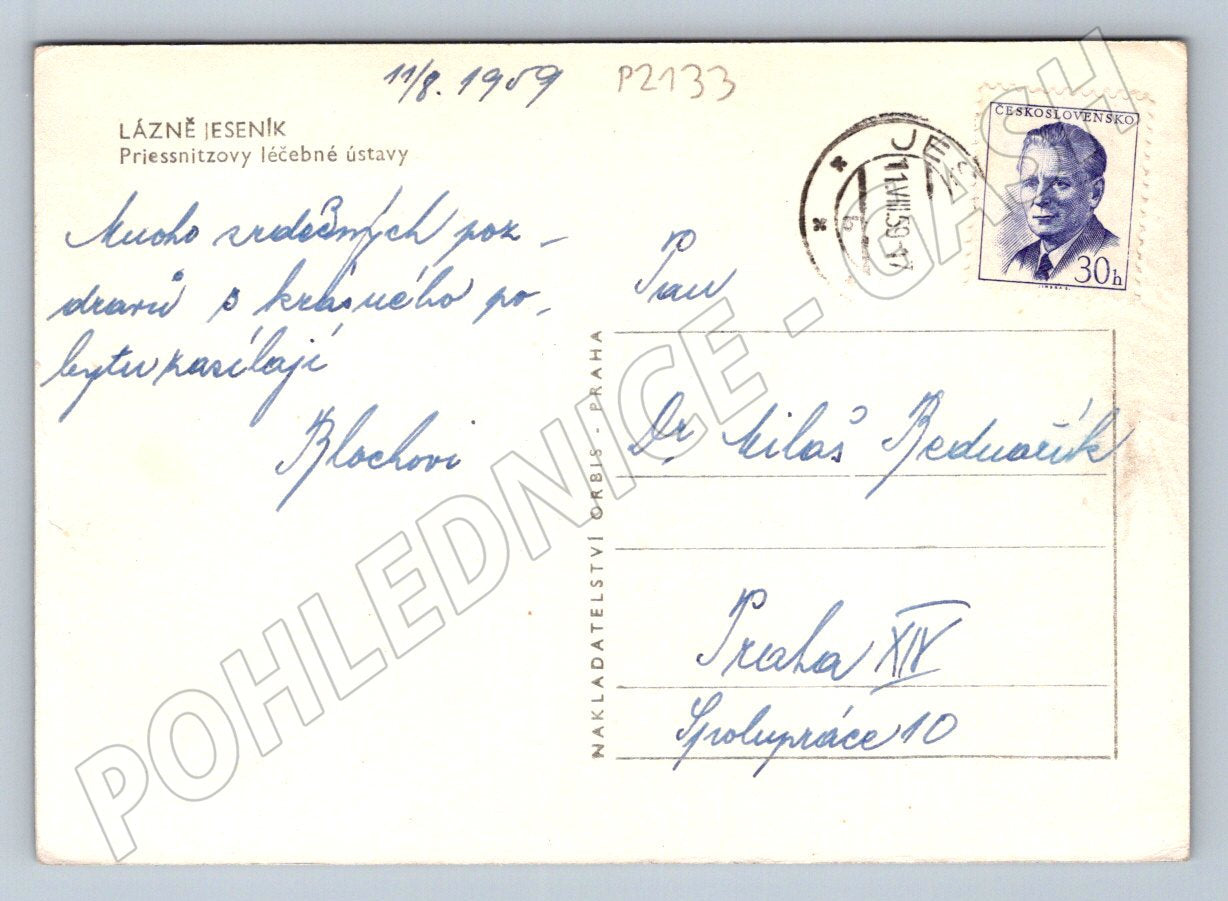 11/8. 1959
P2133
LÁZNĚ JESENÍK
Priessnitzovy léčebné ústavy
Mnoho srdečných poz-
dravů s krásného po-
bytu zasílají
Blochovi
JES
11.VIII.59-17
ČESKOSLOVENSKO
30h
NAKLADATELSTVÍ ORBIS - PRAHA
Pan
Dr. Miloš Bednařík
Praha XIV
Spolupráce 10
POHLEDNICE - GASH